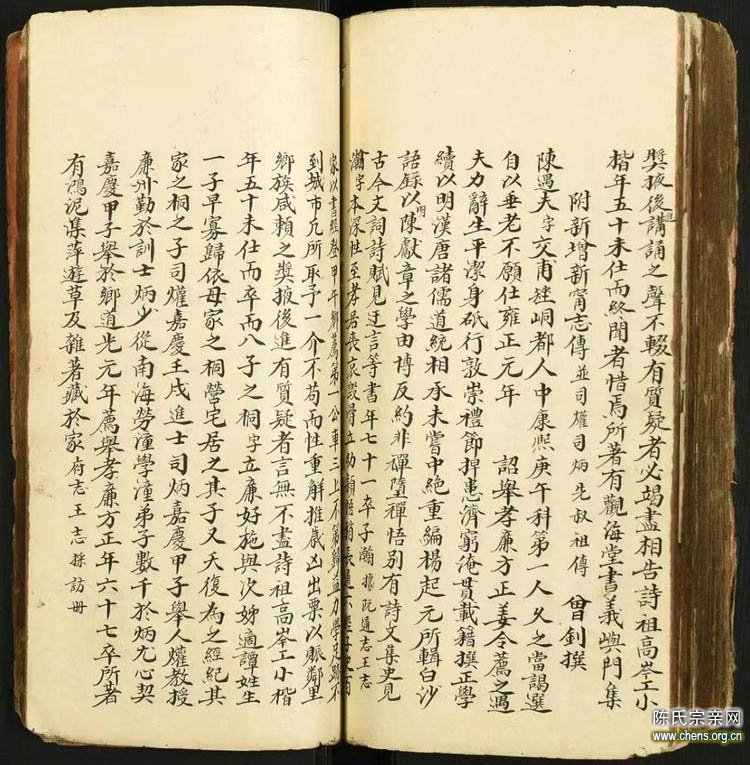 獎掖後進講誦之聲不輟有質疑者必竭盡相告詩祖高岑工小
楷年五十未仕而終聞者惜焉所著有觀海堂書義嶼門集
附新增新甯志傳並司爟司炳先叔祖傳 曾釗撰
陳遇夫字交甫矬峒都人中康熙庚午科第一人久之當謁選
自以垂老不願仕雍正元年 詔舉孝廉方正姜令薦之遇
夫力辭生平潔身砥行敦崇禮節捍患濟窮淹貫載籍撰正學
續以明漢唐諸儒道統相承未嘗中絶重編楊起元所輯白沙
語録以明陳獻章之學由博反約非禪墮禪悟別有詩文集史見
古今文詞詩賦見迂言等書年七十一卒子瀚據阮通志王志
瀚字本深性至孝居喪哀毀骨立幼穎悟稍長通六經子史百
家以書經登甲午鄉薦第一公車三上不第歸益力學足跡不
到城市凡所取予一介不苟而性重解推歲凶出粟以賑鄰里
鄉族咸賴之獎掖後進有質疑者言無不盡詩祖高岑工小楷
年五十未仕而卒而八子之桐字立廉好施與次姊適譚姓生
一子早寡歸依母家之桐營宅居之其子又夭復為之經紀其
家之桐之子司爟嘉慶壬戌進士司炳嘉慶甲子舉人爟教授
廉州勤於訓士炳少從南海勞潼學潼弟子數千於炳尤心契
嘉慶甲子舉於鄉道光元年薦舉孝廉方正年六十七卒所著
有鴻泥集萍遊草及雜著藏於家府志王志採訪冊
陈氏宗亲网
www.chens.org.cn